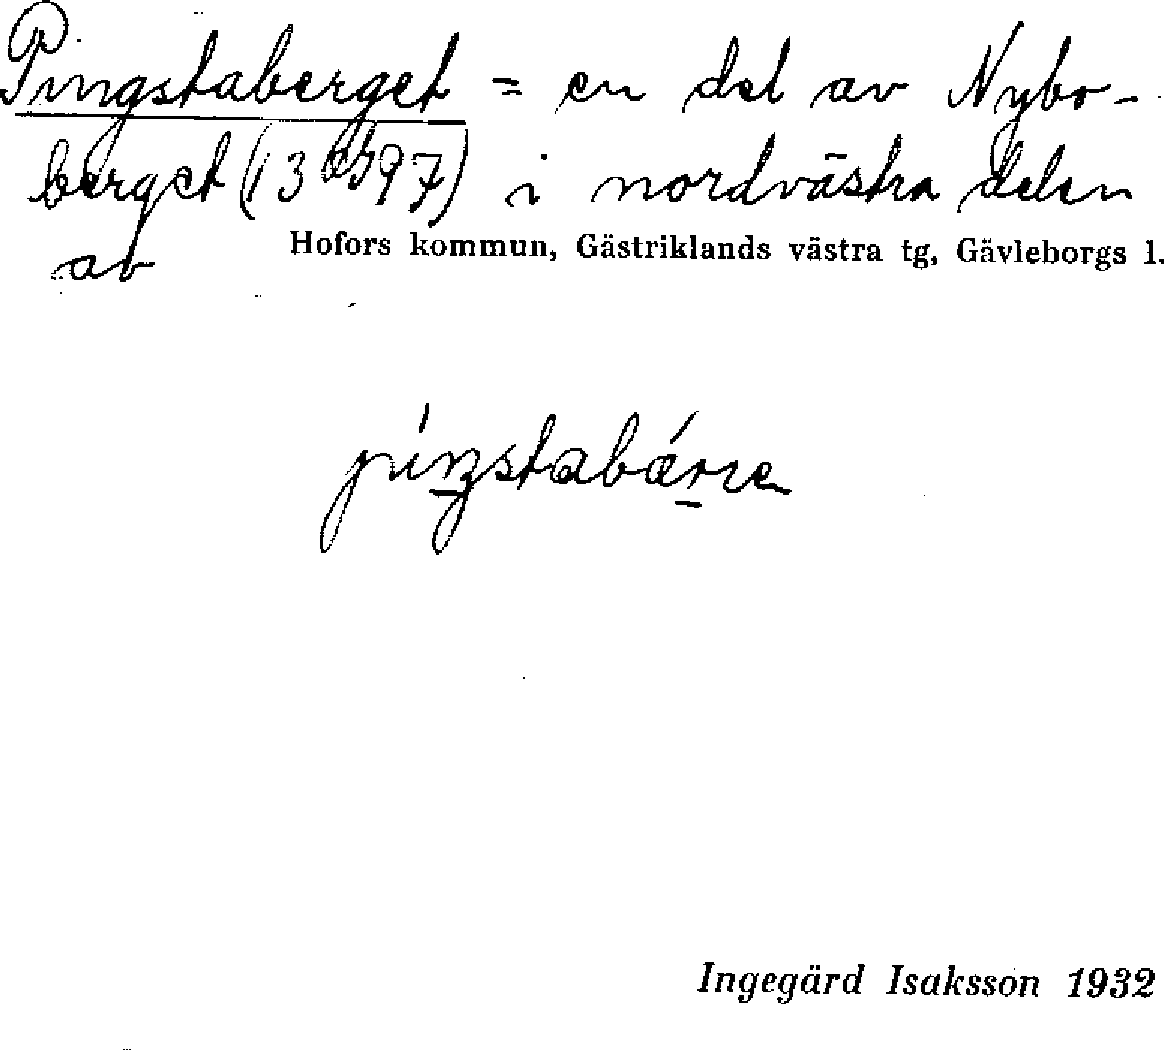 Pingstaberget = en del av Nybo-
berget (13 97) i nordvästra delen
av Hofors kommun, Gästriklands västra tg, Gävleborgs l.
Ingegärd Isaksson 1932